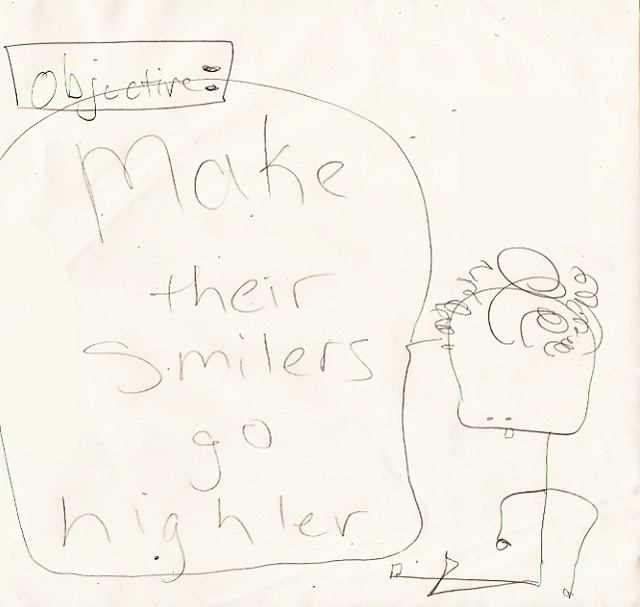 Objective:
Make
their
smilers
go
highler